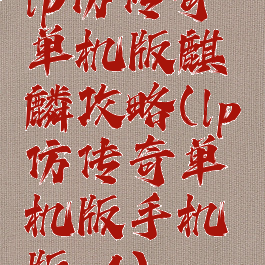 lp仿传奇
单机版麒
麟攻略(lp
仿传奇单
机版手机
版